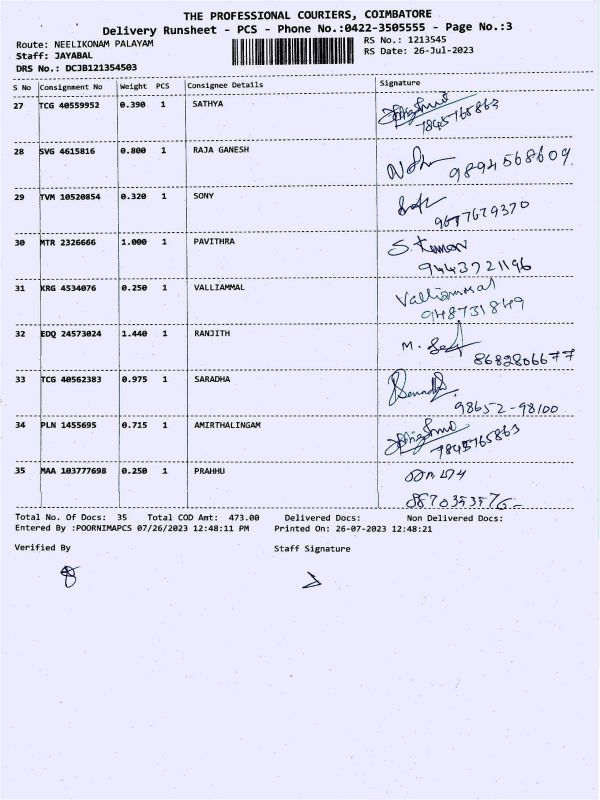 THE PROFESSIONAL COURIERS, COIMBATORE
Delivery Runsheet - PCS - Phone No.:0422-3505555 - Page No.:3
Route: NEELIKONAM PALAYAM RS No.: 1213545
Staff: JAYABAL RS Date: 26-Jul-2023
DRS No.: DCJB121354503
S No Consignment No Weight PCS Consignee Details Signature
27 TCG 40559952 0.390 1 SATHYA
7845765863
28 SVG 4615816 0.800 1 RAJA GANESH
9894568609
29 TVM 10520854 0.320 1 SONY
9677679370
30 MTR 2326666 1.000 1 PAVITHRA S. Kumar
9443721196
31 KRG 4534076 0.250 1 VALLIAMMAL Valliammal
948731849
32 EDQ 24573024 1.440 1 RANJITH M.
8682806677
33 TCG 40562383 0.975 1 SARADHA
98652-98100
34 PLN 1455695 0.715 1 AMIRTHALINGAM
7845765863
35 MAA 103777698 0.250 1 PRAHHU
8870353576-
Total No. Of Docs: 35 Total COD Amt: 473.00 Delivered Docs: Non Delivered Docs:
Entered By :POORNIMAPCS 07/26/2023 12:48:11 PM Printed On: 26-07-2023 12:48:21
Verified By Staff Signature